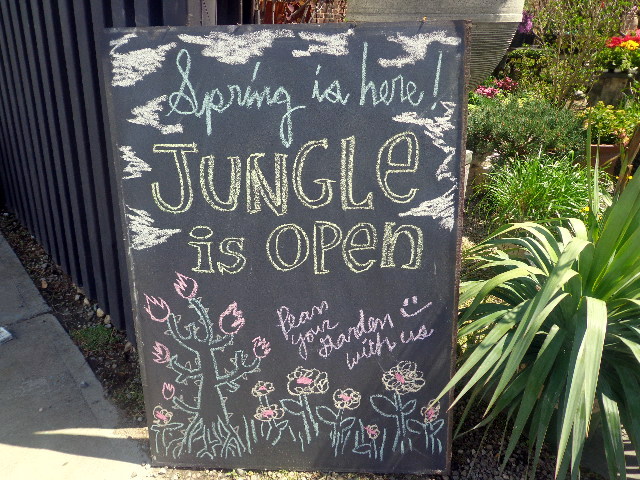 Spring is here!
JUNGLE
is Open
Plan
your
Garden
with us